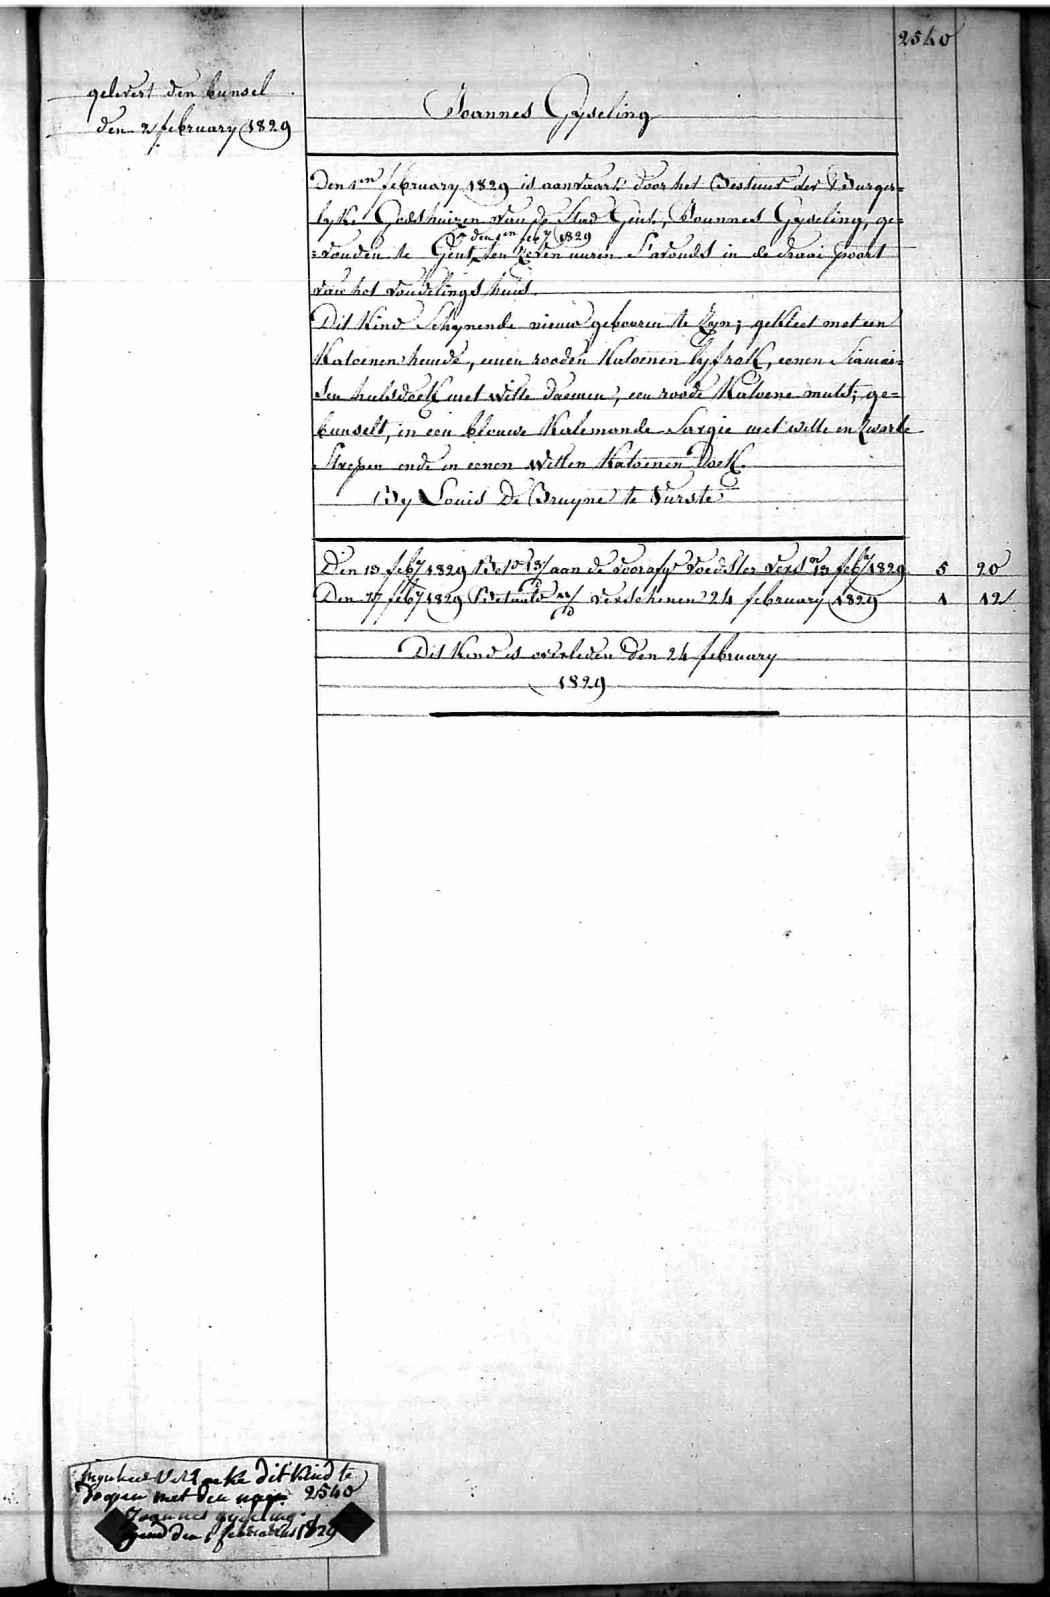 2540
gelevert den bunsel
den 2 february 1829
Joannes Gyseling
Den 1en february 1829 is aanvaart door het Bestuur der Burger=
lyke Godshuizen van de Stad Gent, Joannes Gyseling, ge=
den 1en feby 1829
=vonden te Gent, ten zeven uuren S'avonds in de draai poort
van het vondelings huis.
Dit Kind Schynende nieuw gebooren te Zyn; gekleet met een
Katoenen hemde, eenen rooden Katoenen lyfrok, eenen Siamoi=
sen halsdoek met witte daemen, een roode Katoene muts; ge=
bunselt, in een blauwe Kalemande Sargie met witte en Zwarte
Strepen ende in eenen witten Katoenen Doek.
By Louis De Bruyne te Vurste
Den 13 feby 1829 aan de voorafge voedster versn 13 feby 1829 5 20
Den 27 feby 1829 Betaald verschenen 24 february 1829 1 12
Dit Kind is overleden den 24 february
1829
dit Kind te
doopen met den naam 2540
Joannes gyseling
gend den 1 februarius 1829